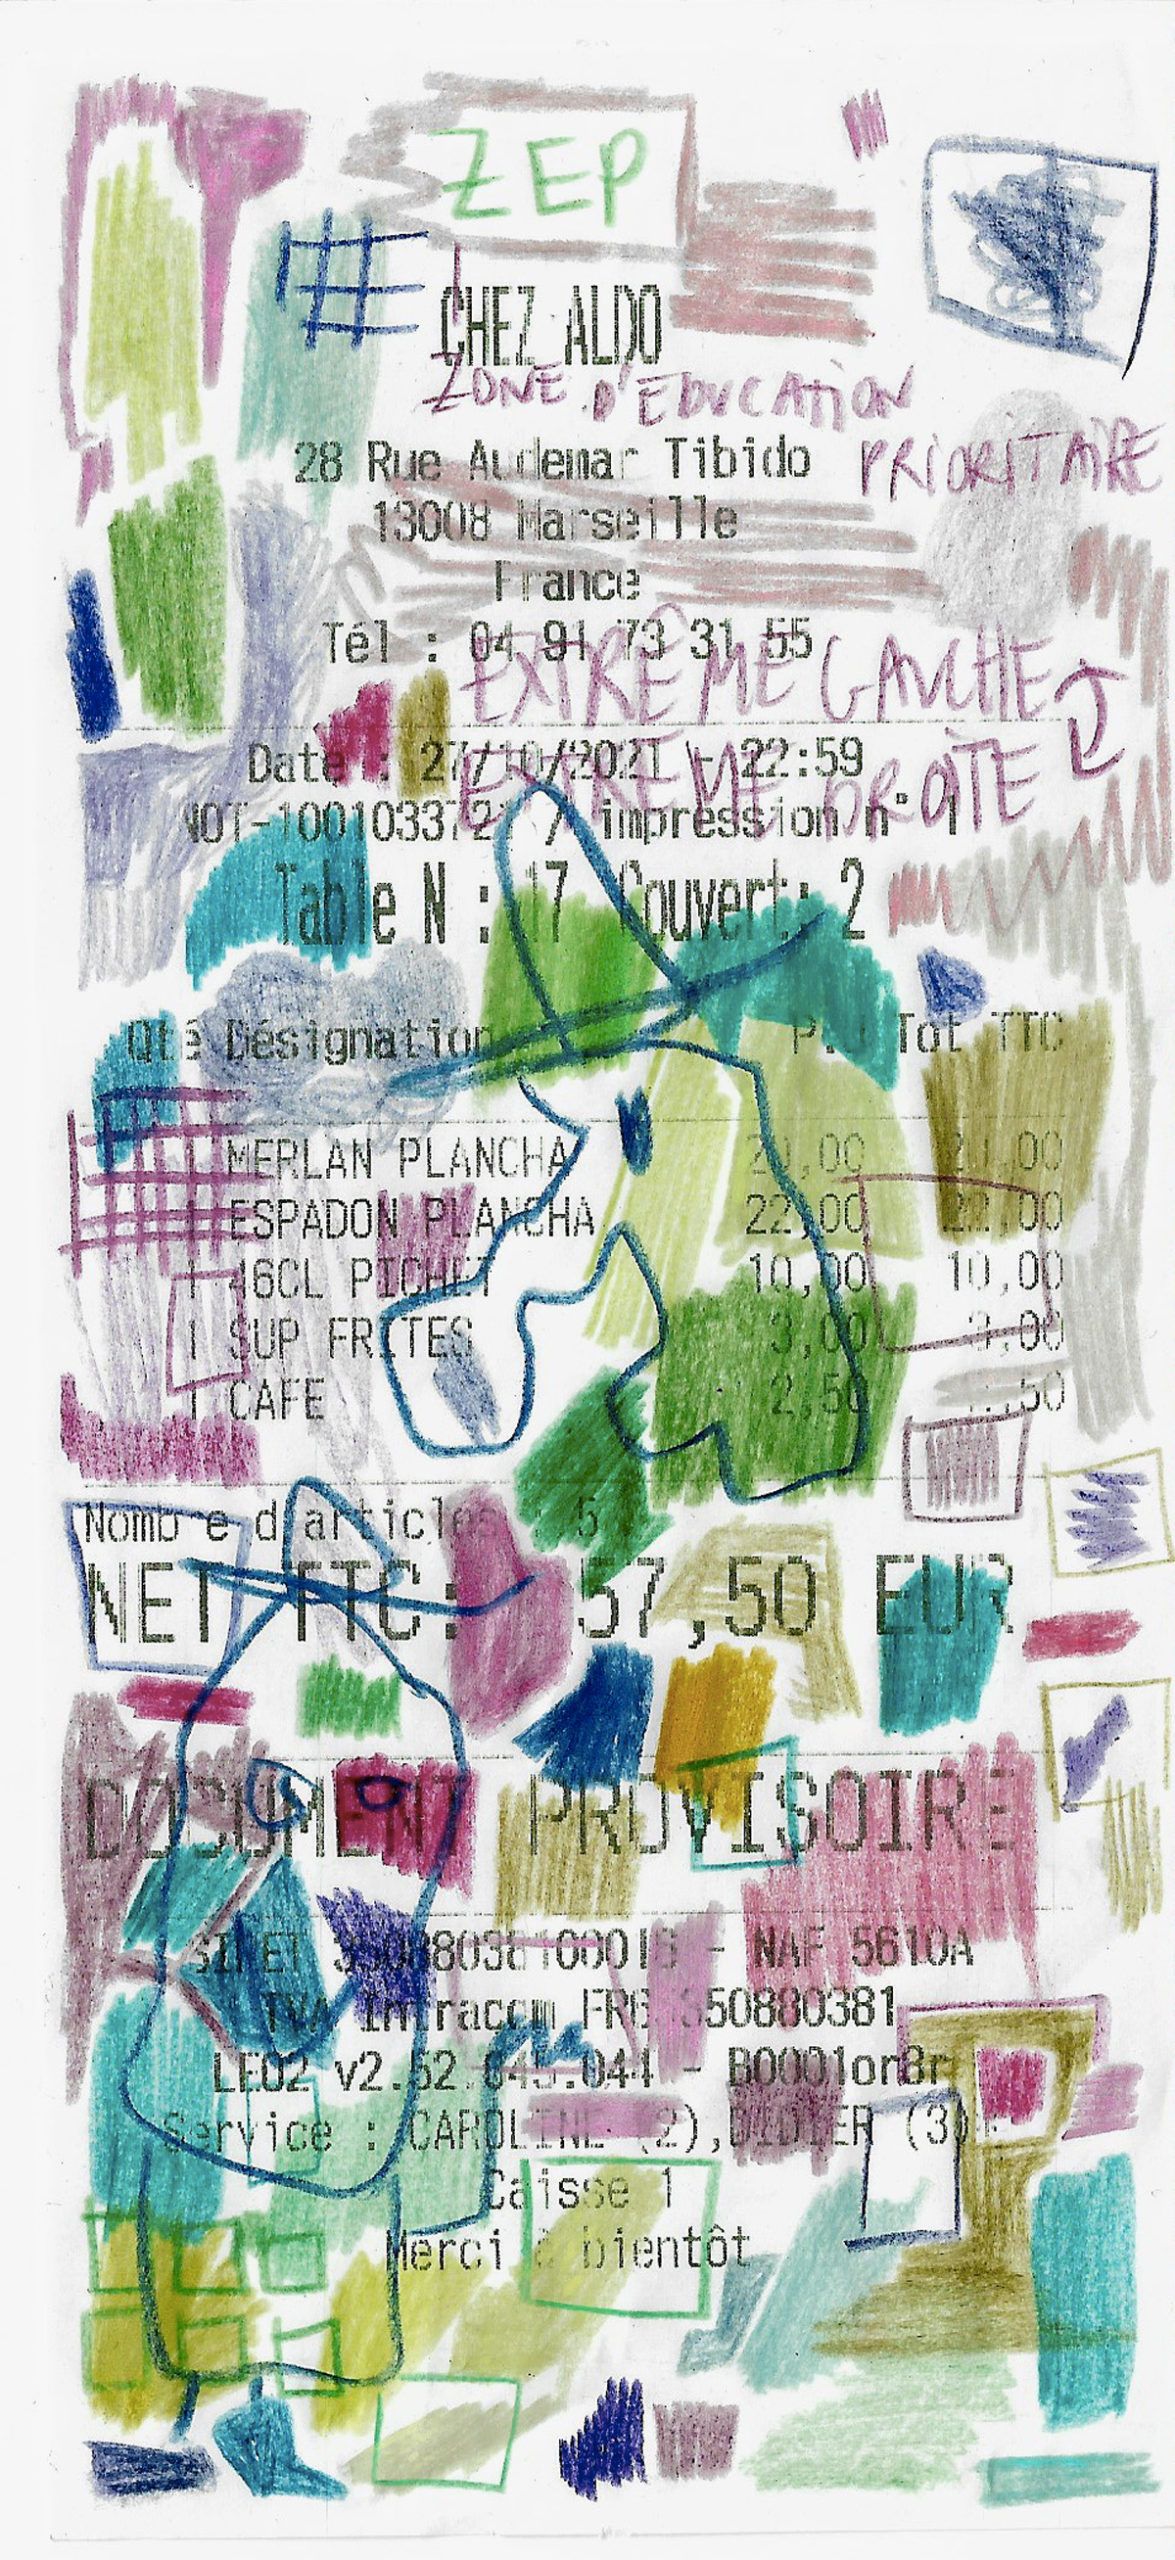 ZEP
CHEZ ALDO
ZONE D'EDUCATION
PRIORITAIRE
28 Rue Audemar Tibido
13008 Marseille
France
Tél : 04 91 73 31 55
EXTRÊME GAUCHE
EXTREME DROITE
Date : 27/10/2021 - 22:59
impression n° 1
Table N : 17 Couvert: 2
Qté Désignation P. Tot TTC
1 MERLAN PLANCHA 20,00 20,00
1 ESPADON PLANCHA 22,00 22,00
1 46CL PICHET 10,00 10,00
1 SUP FRITES 3,00 3,00
1 CAFE 2,50 2,50
Nombre d'articles : 5
NET TTC: 57,50 EUR
DOCUMENT PROVISOIRE
SIRET - NAF 5610A
TVA Intracom 350880381
LEO2
Service : CAROLINE (2),DIDIER (3)
Caisse 1
Merci à bientôt